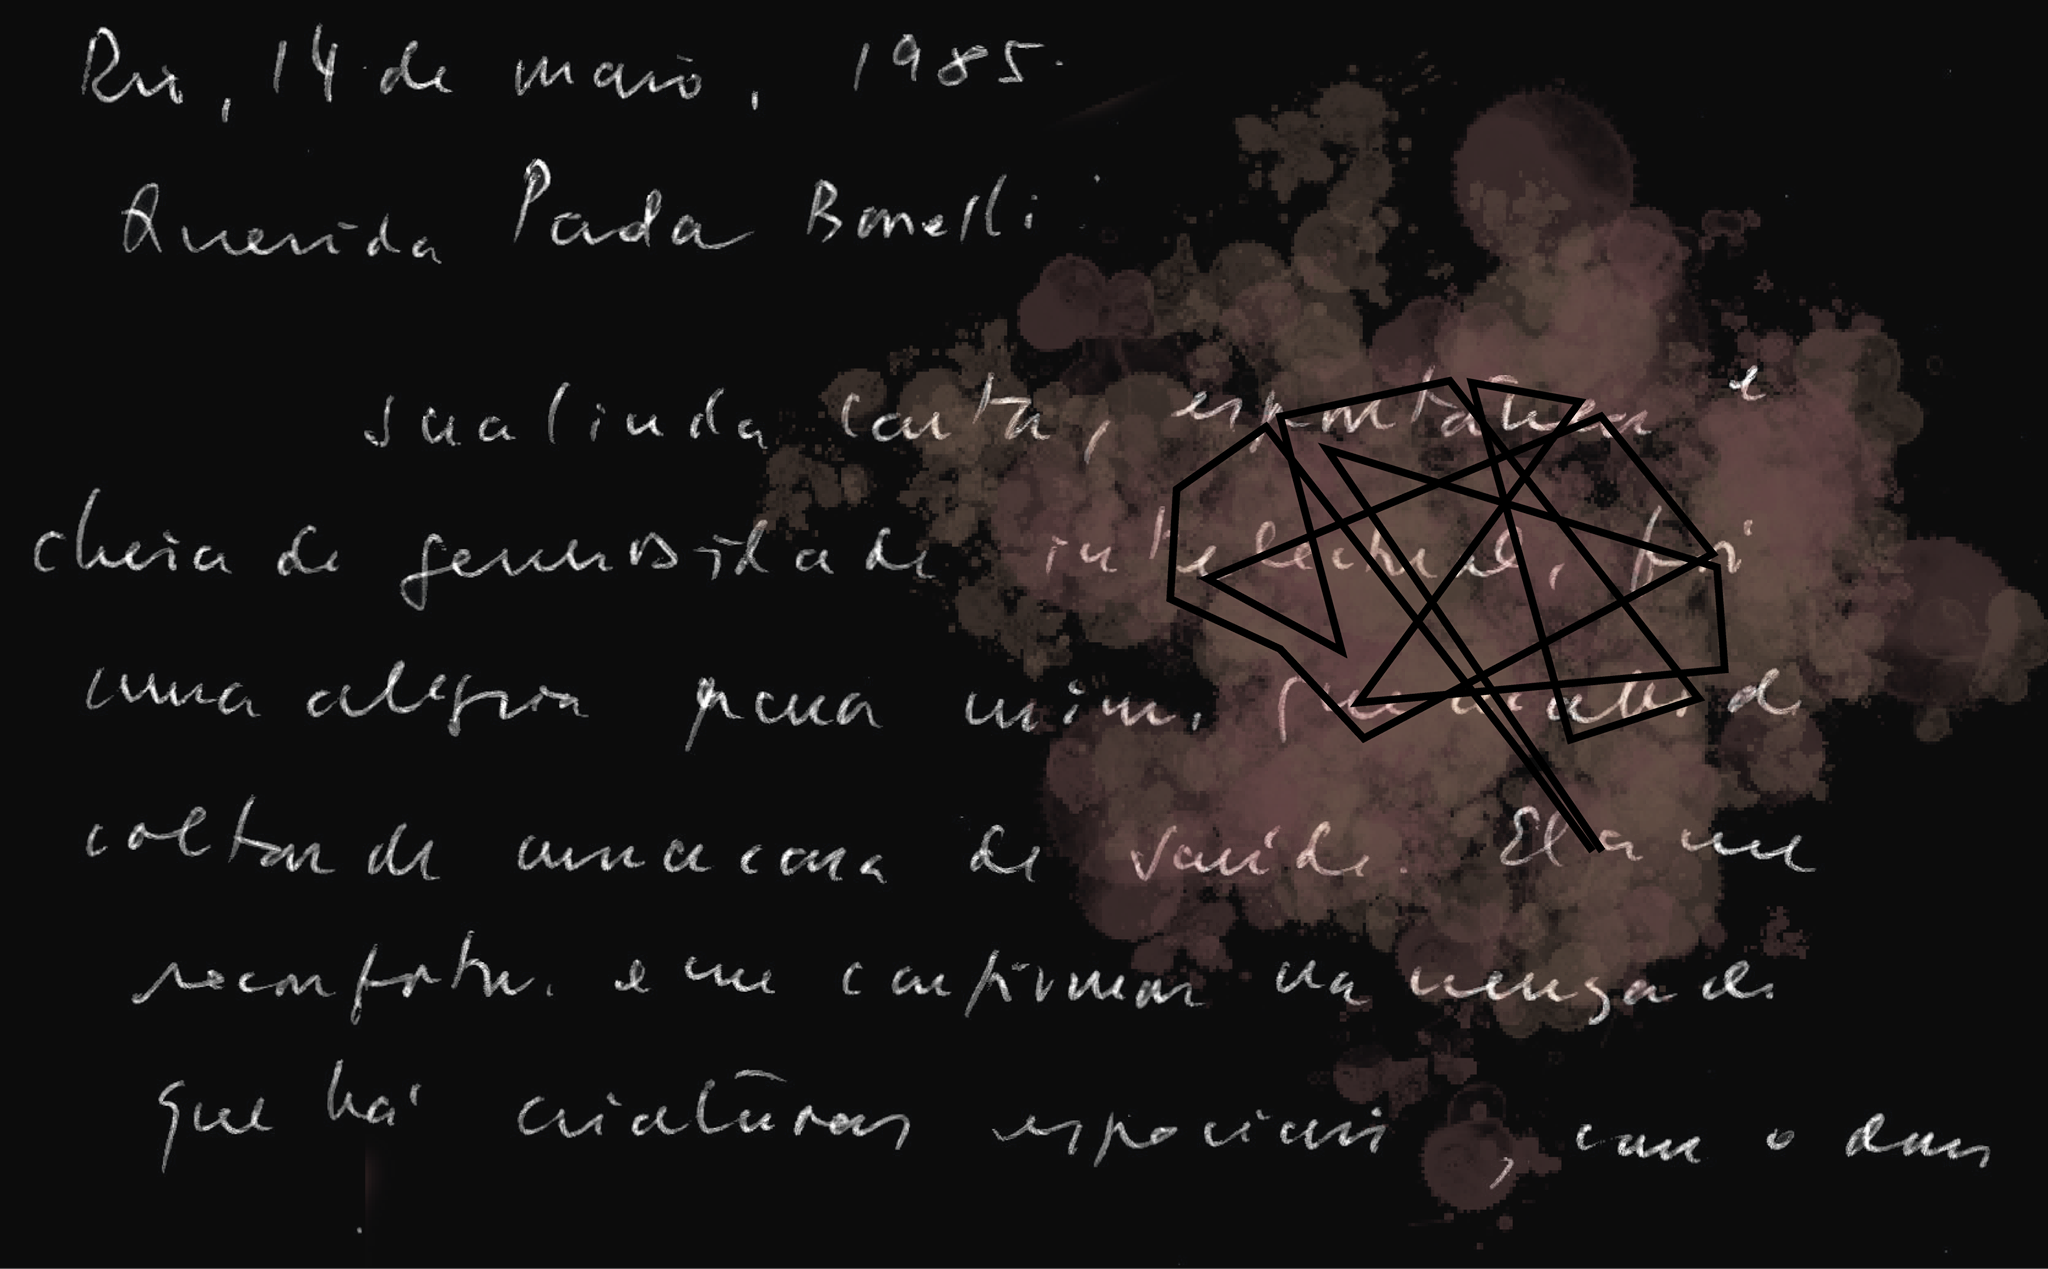 Rio, 14 de maio, 1985.
Querida Prada Bonelli:
sua linda carta, espontânea e
cheia de generosidade intelectual, foi
uma alegria para mim, que acabo de
voltar de uma casa de saúde. Ela me
reconforta. e me confirmar na
que há criaturas especiais, com o dom